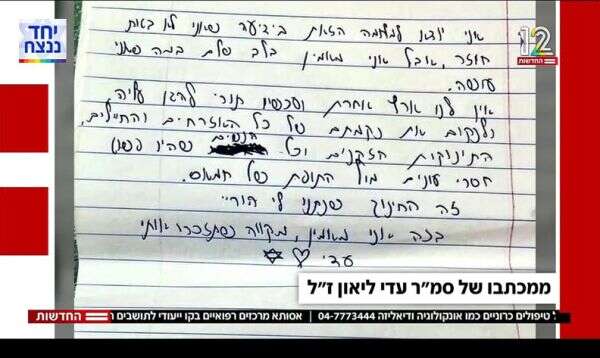 יחד
ננצח
12
החדשות
אני יוצא למלחמה הזאת בידיעה שאני לא באות
חוזר, אבל אני מאמין בלב שלם במה שאני
עושה.
אין לנו ארץ אחרת ועכשיו תורי להגן עליה
ולנקום את נקמתם של כל האזרחים והחיילים,
התינוקות הזקנים וכל הנשים שהיו פשוט
חסרי עונים מול התופת של חמאס.
זה החינוך שנתנו לי הוריי
בזה אני מאמין, מקווה שתזכרו אותי
עדי ♡ ✡
ממכתבו של סמ״ר עדי ליאון ז״ל
החדשות
ל טיפולים כרוניים כמו אונקולוגיה ודיאליזה 04-7773444 | אסותא מרכזים רפואיים בקו ייעודי לתושבים ה